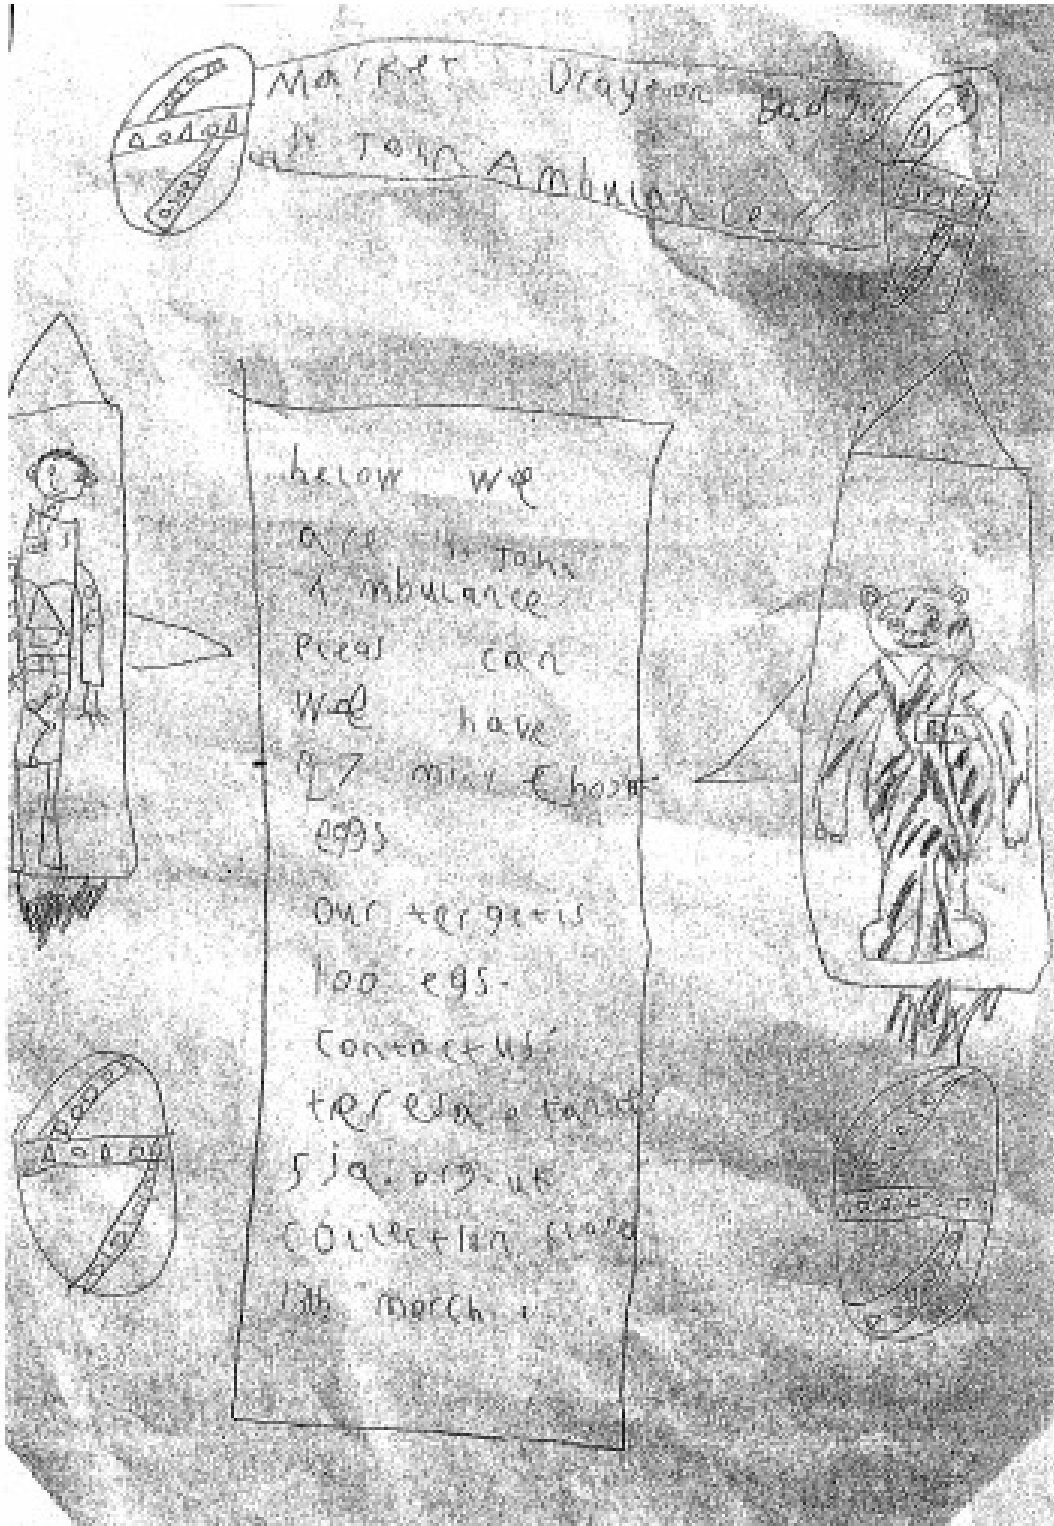 Market Drayton Badger
St John Ambulance
hellow we
are St John
Ambulance
Pleas can
we have
27 mink
eggs
our terget is
100 egs.
Contact us
sja.org.uk
collection
march